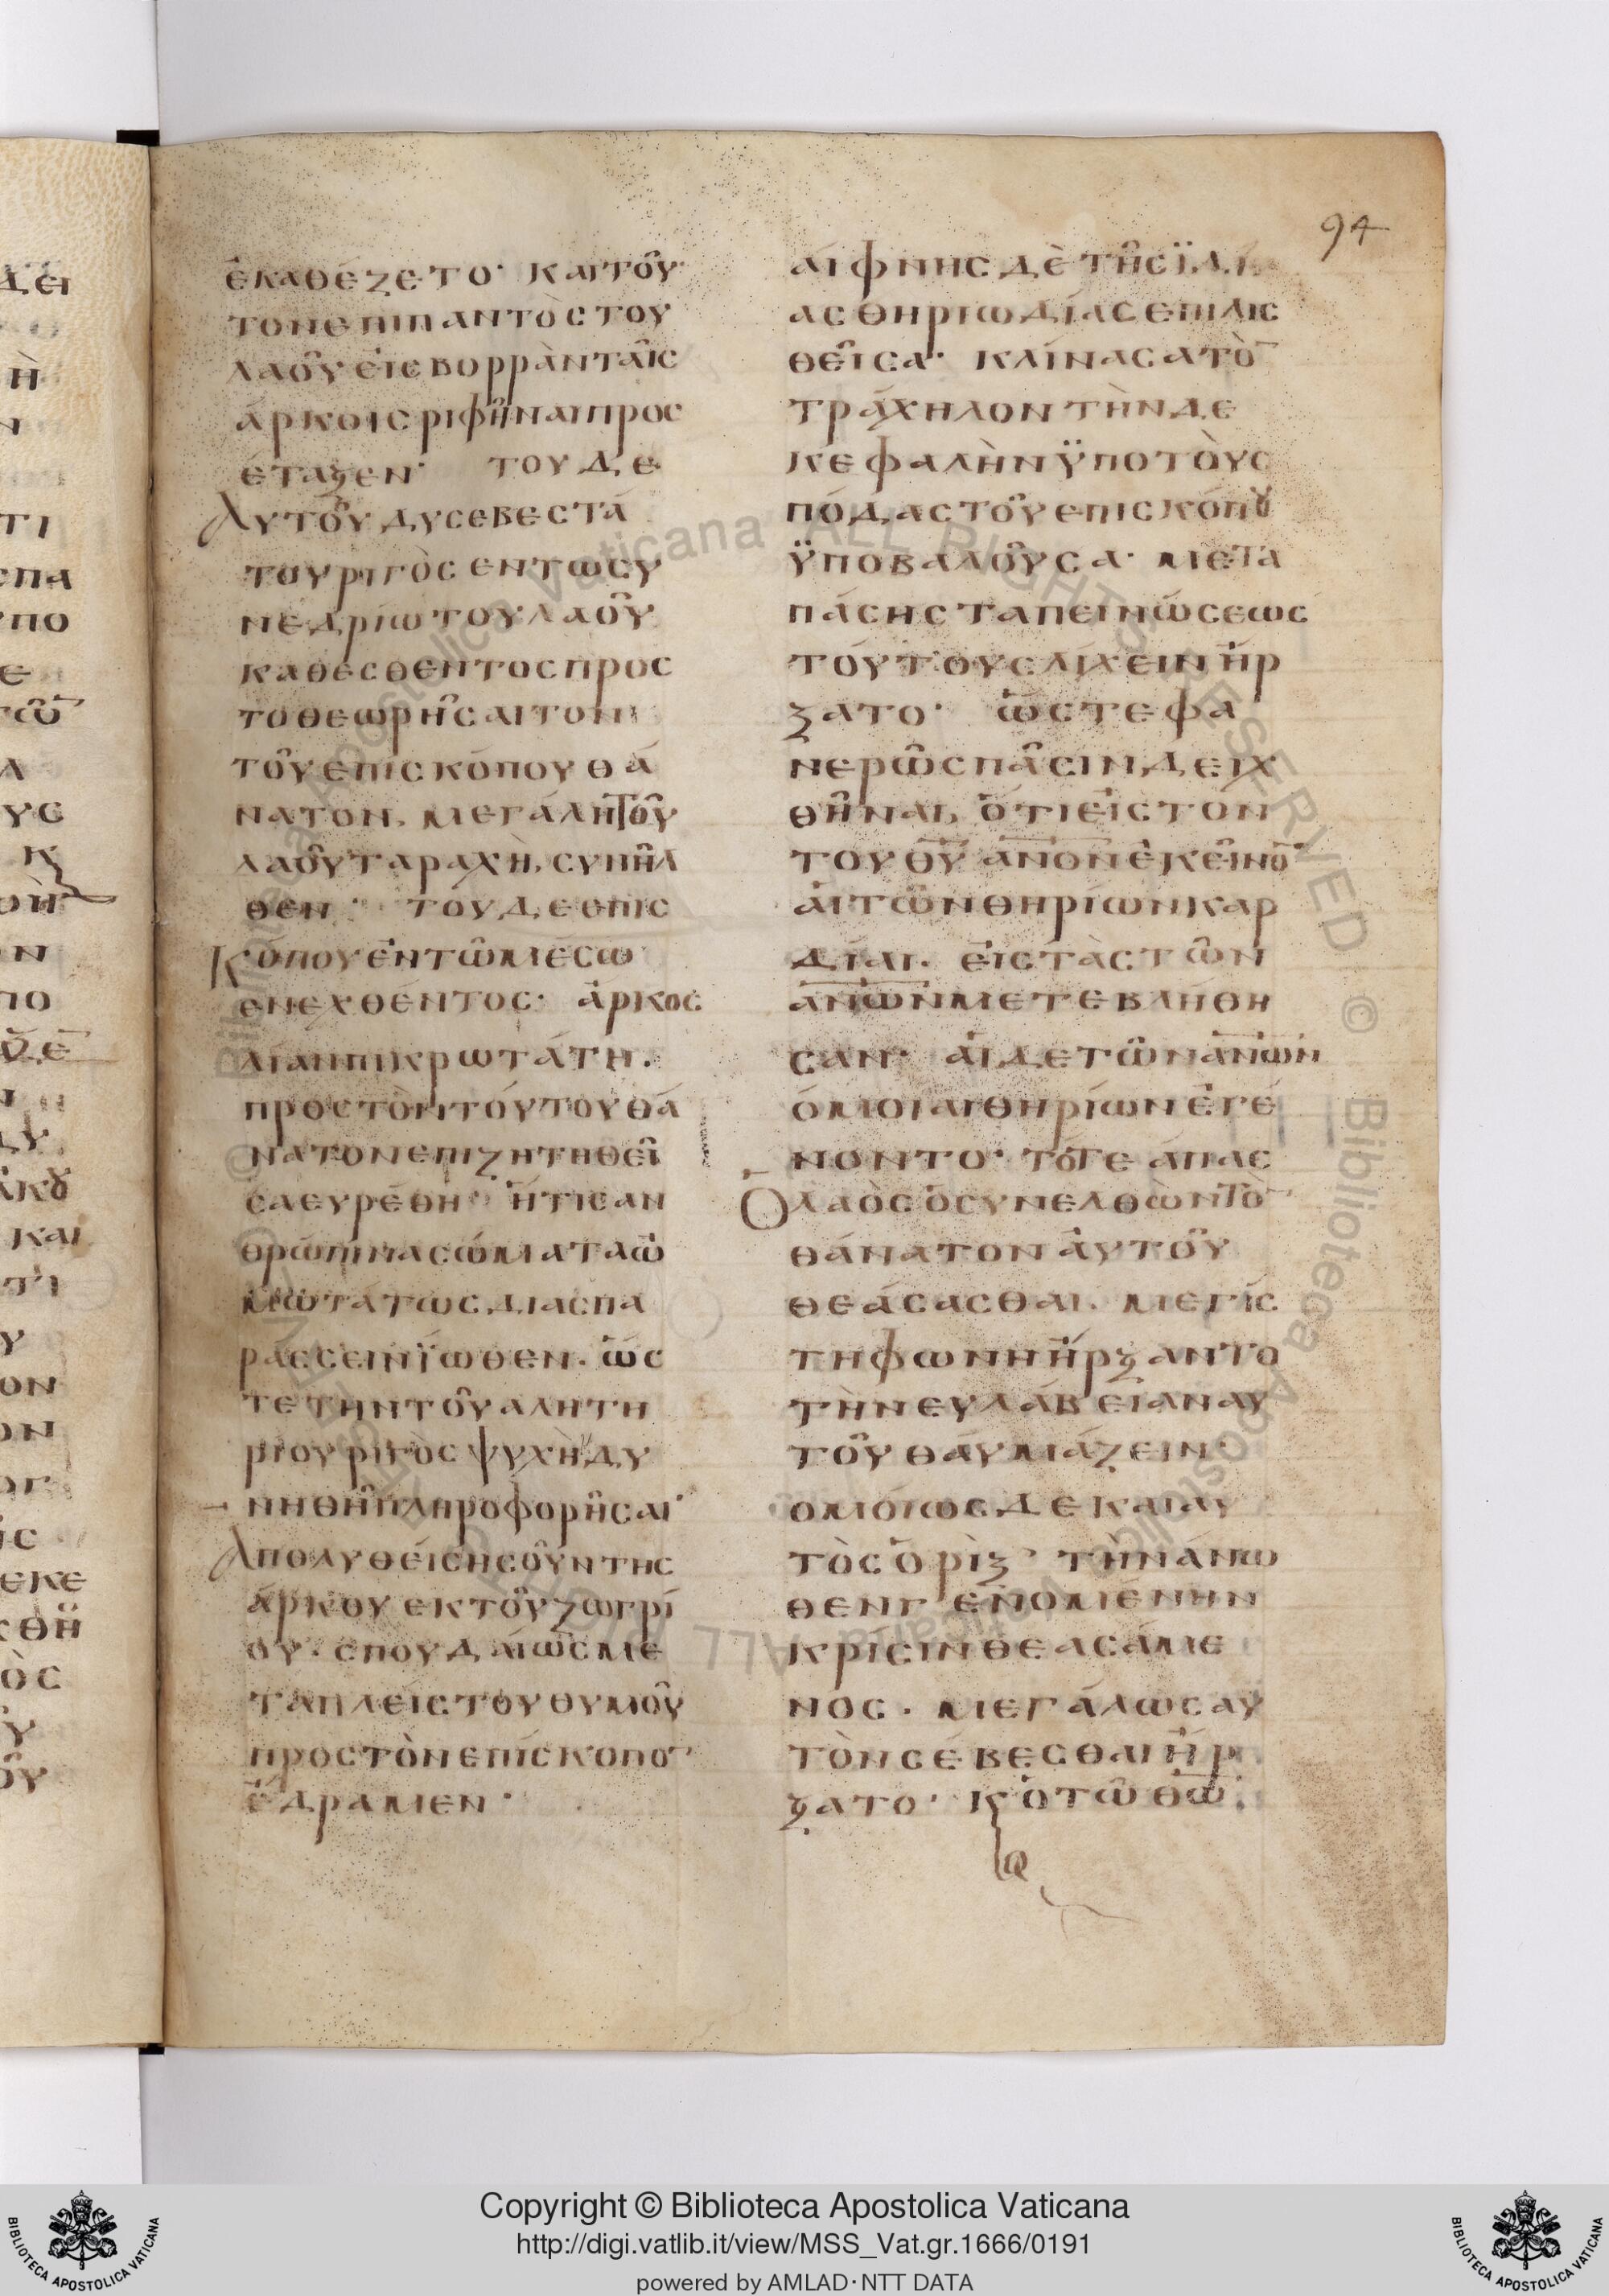 94
ἐκαθέζετο· καιτοῦ
τονεπιπαντὸςτου
λαοῦεἰςβορρὰνταῖς
ἄρκοιςριφῆναιπροσ
έταξεν· τουδε
Αυτοῦδυσεβεστά
τουριγὸςεντωσυ
νεδρίωτουλαοῦ
καθεσθεντοςπροσ
τοθεωρῆσαιτον
τοῦεπισκόπουθά
νατον, μεγάλητοῦ
λαοῦταραχὴ, συνῆλ
θεν· τουδεεπισ
Κόπουἐντῶμέσω
ενεχθέντος· ἄρκος
λίανπικρωτάτη.
προςτὸντούτουθά
νατονεπιζητηθεῖ
σαευρέθη· ἥτιςαν
θρώπιναςώματαὠ
μωτάτωςδιασπα
ράεσεινἰώθεν. ὥσ
τετηντοῦαλητη
ρίουριγὸςψυχὴνδυ
νηθῆπληροφορῆσαι·
Απολυθείσηςοῦντης
ἄρκουεκτοῦζωγρί
ου. σπουδαίωςμε
ταπλείστουθυμοῦ
προςτὸνεπίσκοπον
ἔδραμεν·
αίφνηςδὲτῆςϊδί
αςθηριωδίαςεπιλισ
θεῖσα· κλίναςατὸν
τράχηλοντὴνδε
κεφαλὴνϋποτὸυς
πόδαςτοῦεπισκόπȣ
ϋποβαλοῦσα· μετα
πάσηςταπεινώσεως
τούτουςλίχεινἤρ
ξατο· ὥστεφα
νερῶςπᾶσινδειχ
θῆναι, ὅτιεἰςτον
τουθῦανονἐκεῖνον
ἁιτῶνθηρίωνκαρ
δίαι. εἰςτὰςτῶν
ανωνμετεβλήθη
σαν· ἁιδετῶνανων
όμοιαιθηρίωνἐγέ
νοντο· τότεάπας
Ολαὸςὁσυνελθὼντὸν
θάνατοναὐτοῦ
θεάσασθαι. μεγίσ
τηφωνηἤρξαντο
τὴνευλάβειαναυ
τοῦθαυμάζειν·
ομοίωςδεκαιαυ
τὸςὁρὶξ· τὴνάνω
θενγενομένην
κρίσινθεασάμε
νος. μεγάλωςαυ
τὸνσέβεσθαιἤρ
ξατο· κ ὁτῶθῶ
Copyright © Biblioteca Apostolica Vaticana
http://digi.vatlib.it/view/MSS_Vat.gr.1666/0191
powered by AMLAD·NTT DATA
BIBLIOTECA APOSTOLICA VATICANA
BIBLIOTECA APOSTOLICA VATICANA